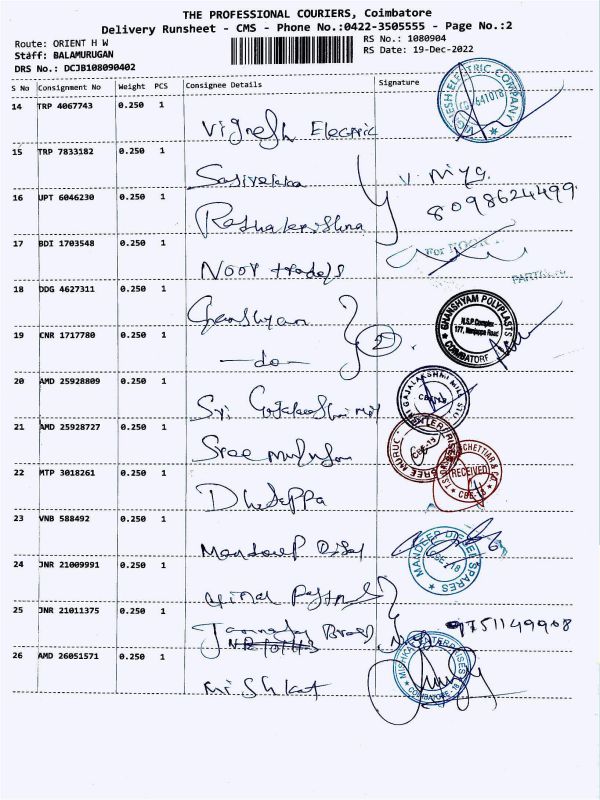 THE PROFESSIONAL COURIERS, Coimbatore
Delivery Runsheet - CMS - Phone No.:0422-3505555 - Page No.:2
Route: ORIENT H W
RS No.: 1080904
Staff: BALAMURUGAN
RS Date: 19-Dec-2022
DRS No.: DCJB108090402
S No Consignment No Weight PCS Consignee Details Signature
14 TRP 4067743 0.250 1
Vignesh Electric
15 TRP 7833182 0.250 1
16 UPT 6046230 0.250 1
8098624499
17 BDI 1703548 0.250 1
Noor traders
18 DDG 4627311 0.250 1
Ganshyam
GHANSHYAM POLYPLASTS
N.S.P Complex
177, Nanjappa Road
COIMBATORE
19 CNR 1717780 0.250 1
do
2
20 AMD 25928809 0.250 1
Sri
21 AMD 25928727 0.250 1
Sree
CHETTIAR & CO.
RECEIVED
CBE-18
22 MTP 3018261 0.250 1
23 VNB 588492 0.250 1
Mandeep
MANDEEP DIESEL SPARES
CBE-18
24 JNR 21009991 0.250 1
25 JNR 21011375 0.250 1
9751149908
26 AMD 26051571 0.250 1
Mishkat
COIMBATORE - 18